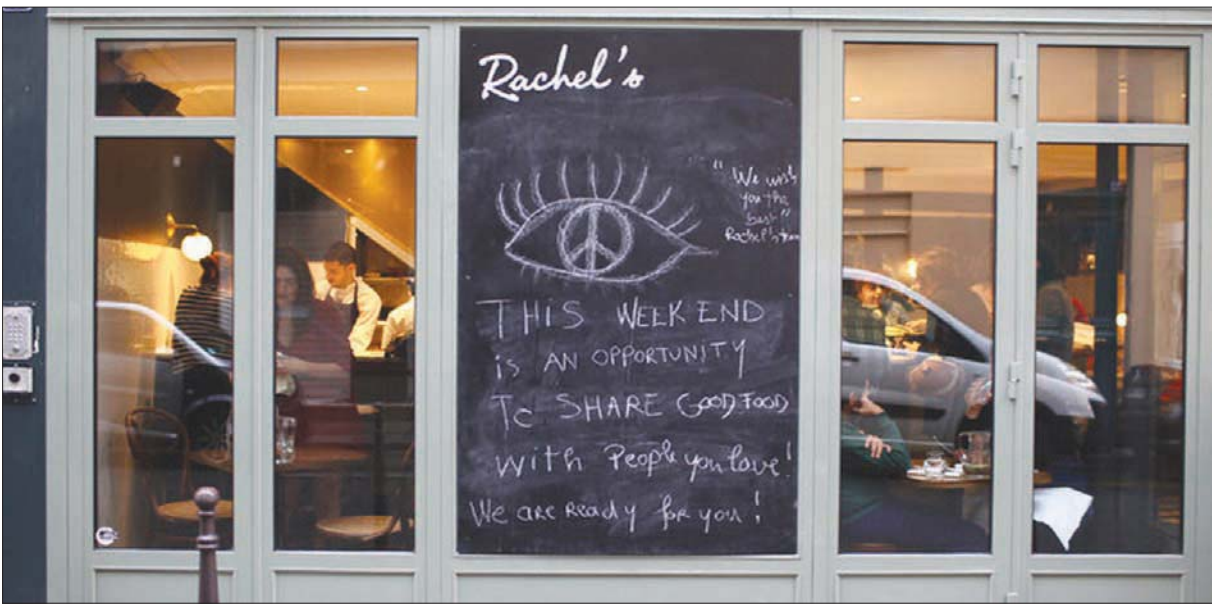 Rachel's
"We wish
you the
best"
Rachel's team
THIS WEEK END
is AN OPPORTUNITY
To SHARE GOOD FOOD
with People you love!
We are Ready for you!